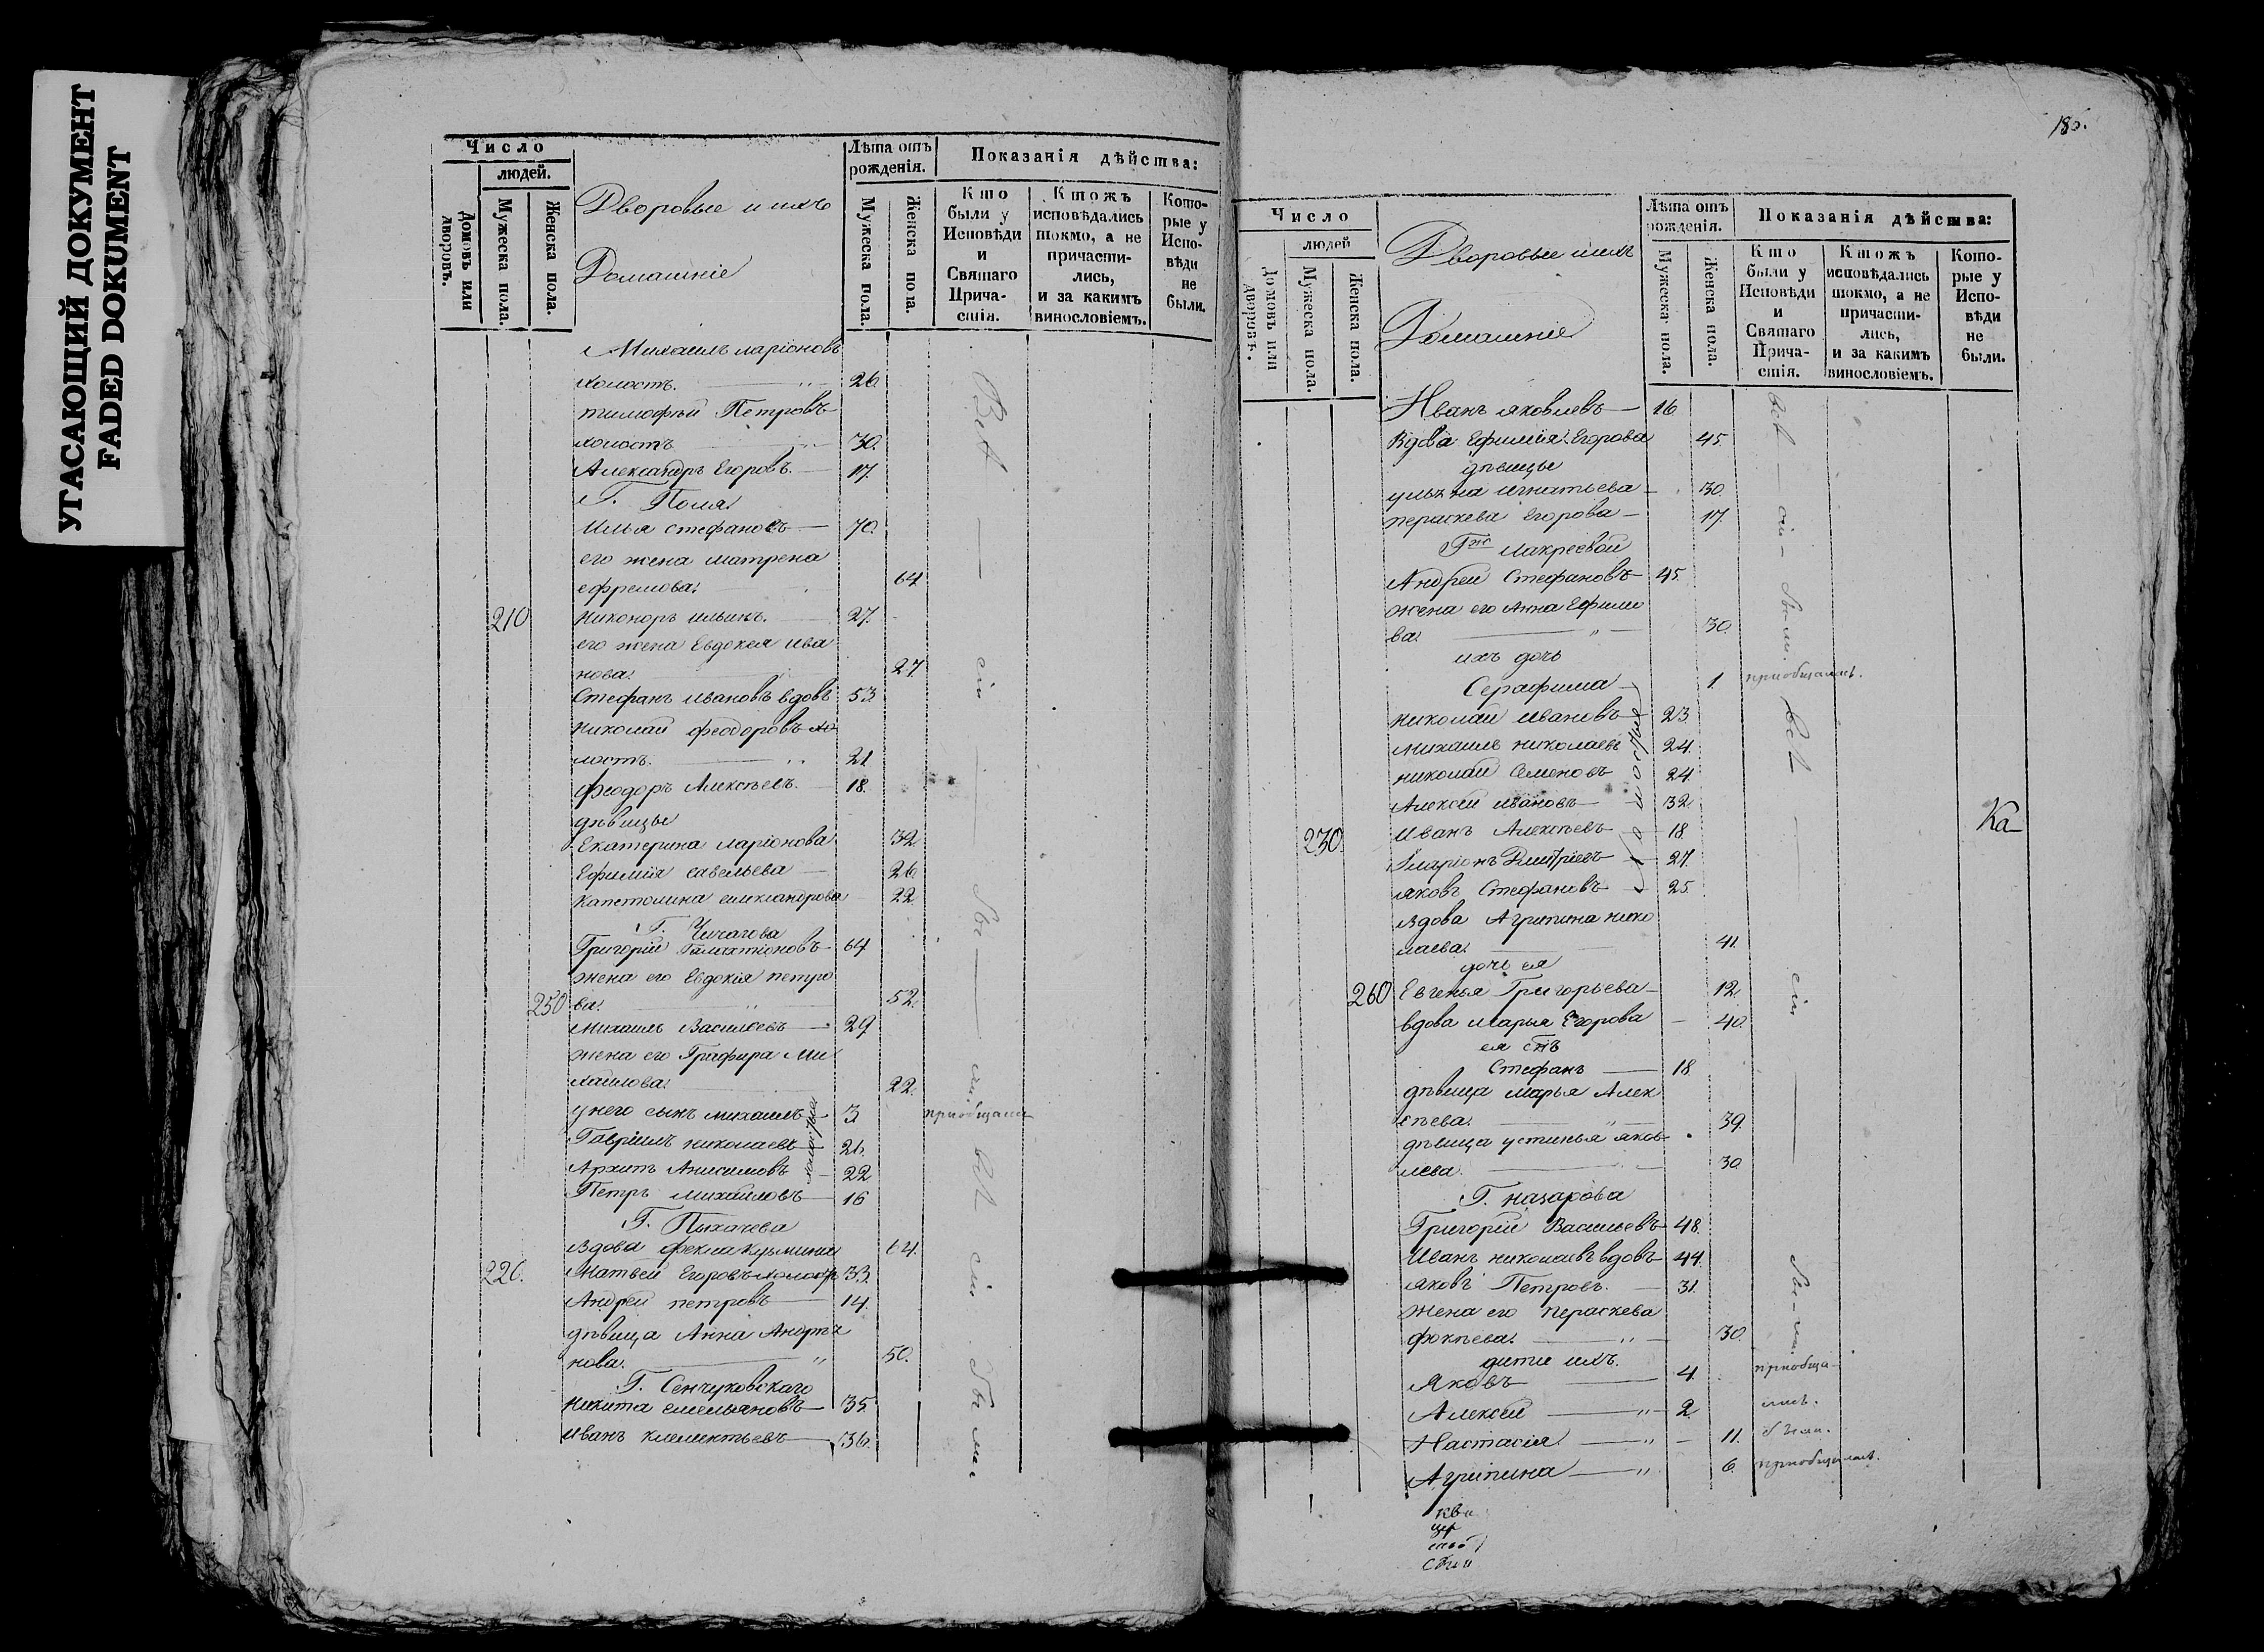 УГАСАЮЩИЙ ДОКУМЕНТ
FADED DOKUMENT
Число
людей.
Домовъ или дворовъ.
Мужеска пола.
Женска пола.
Дворовые и ихъ
Домашніе
Лѣта отъ рожденія.
Мужеска пола.
Женска пола.
Показанія дѣйства:
Кто были у Исповѣди и Святаго Прича-стія.
Ктожъ исповѣдались токмо, а не причасти-лись, и за какимъ винословіемъ.
Кото-рые у Испо-вѣди не были.
Михаилъ ларіоновъ
холостъ. 26
тимофѣй Петровъ
холостъ 30.
Александръ Егоровъ. 17.
Г. Поля
Илья стефановъ 70.
его жена матрена
ефремова. 64
210 Никоноръ ильинъ. 27.
его жена Евдокея ива
нова. 27
Стефанъ ивановъ вдовъ 53.
Николай феодоровъ хо
лостъ. 21
Феодоръ Алексѣевъ. 18.
дѣвицы
Екатерина ларіонова 32
Ефимія савельева 26
Капетолина александрова 22
Г. Чичагова
Григорій 64
жена его Евдокія петро
250 ва. 52.
Михаилъ Васильевъ 29
жена его Графира Ми
хайлова. 22.
у него сынъ михаилъ 3 приобщался
Гавріилъ николаевъ 26.
Архипъ Анисимовъ 22
Петръ михайловъ 16
Г. Пыхачева
Вдова фекла кузьмина 64.
220. Матвей Егоровъ холостъ 33.
Андрей петровъ 14.
дѣвица Анна Андрея
нова. 50.
Г. Сенчуковскаго
Никита емельяновъ 35.
Иванъ клементьевъ 36.
Всѣ сіи бы ли всѣ сіи бы ли
185.
Число
людей
Домовъ или дворовъ.
Мужеска пола.
Женска пола.
Дворовые и ихъ
Домашніе
Лѣта отъ рожденія.
Мужеска пола.
Женска пола.
Показанія дѣйства:
Кто были у Исповѣди и Святаго Прича-стія.
Ктожъ исповѣдались токмо, а не причасти-лись, и за какимъ винословіемъ.
Кото-рые у Испо-вѣди не были.
Иванъ яковлевъ 16
Вдова Ефимія Егорова 45.
дѣвицы
ульяна игнатьева 30.
параскева Егорова 17.
Гжи Макреевой
Андрей Стефановъ 45.
жена его Анна Ефимо
ва. 30.
ихъ дочь
Серафима 1. приобщалась.
николай ивановъ 23.
михаилъ николаевъ 24.
николай Семеновъ 24.
Алексѣй ивановъ 32.
230. Иванъ Алексѣевъ 18.
Иларіонъ Дмитріевъ 27.
яковъ Стефановъ 25.
холосты
вдова Агрипина нико
лаева. 41.
дочь ея
260 Евгенья Григорьева 12.
вдова Марья Егорова 40.
ея снъ
Стефанъ 18
дѣвица Марья Алек
сѣева. 39.
дѣвица устинья яков
лева. 30
Г. назарова
Григорій Васильевъ 48.
Иванъ николаевъ вдовъ 44.
яковъ Петровъ. 31.
жена его параскева
фокѣева. 30.
дѣти ихъ.
Яковъ 4. приобща-
Алексѣй 2. лись.
Настасія 11. были.
Агрипина 6. приобщалась.
всѣ сіи бы-ли. всѣ сіи бы-ли.
Ка